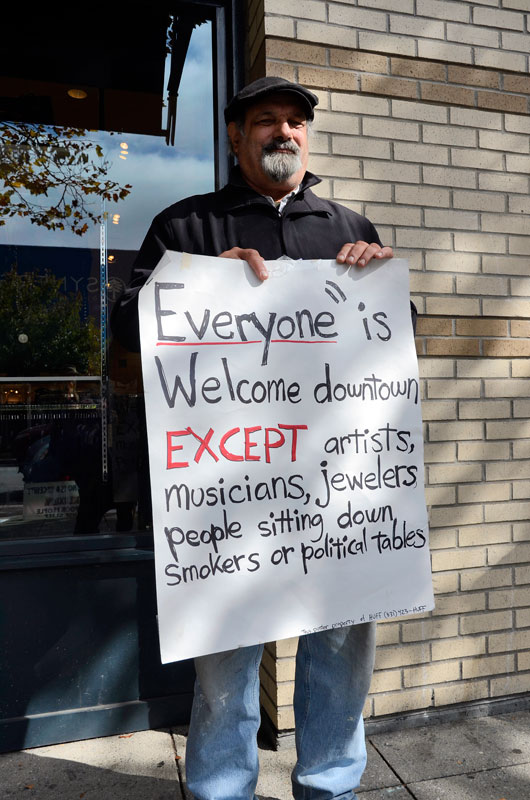 Everyone" is
Welcome downtown
EXCEPT artists,
musicians, jewelers,
people sitting down,
smokers or political tables
This poster property of HUFF (831) 423-HUFF